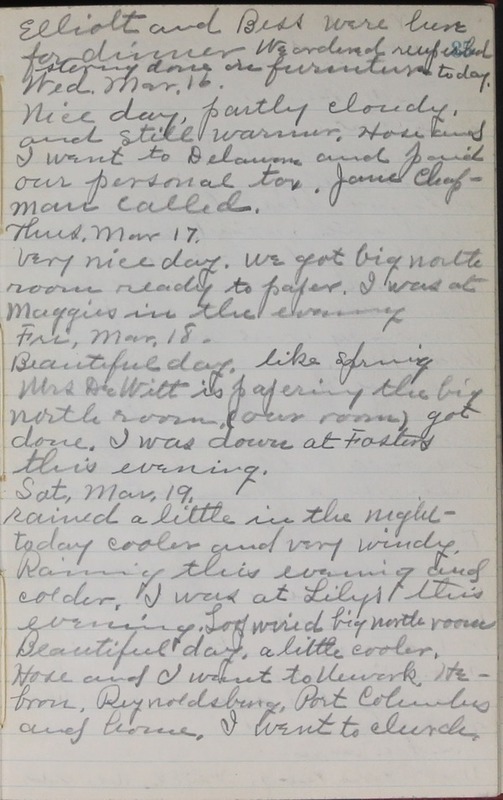 Elliott and Bess were here
for dinner We ordered reupholstering done on furniture today.
Wed. Mar. 16.
Nice day, partly cloudy,
and still warmer. Hose and
I went to Delaware and paid
our personal tax. Jane Chap-
man called.
Thurs. Mar 17.
Very nice day. We got big north
room ready to paper. I was at
Maggies in the evening
Fri, Mar, 18.
Beautiful day. like spring
Mrs DeWitt is papering the big
north room, (our room) got
done. I was down at Fosters
this evening.
Sat, Mar, 19.
rained a little in the night-
today cooler and very windy.
Raining this evening and
colder. I was at Lilys this
evening. wired big north room
Beautiful day. a little cooler.
Hose and I went to Newark, He-
bron, Reynoldsburg, Port Columbus
and home. I went to church.